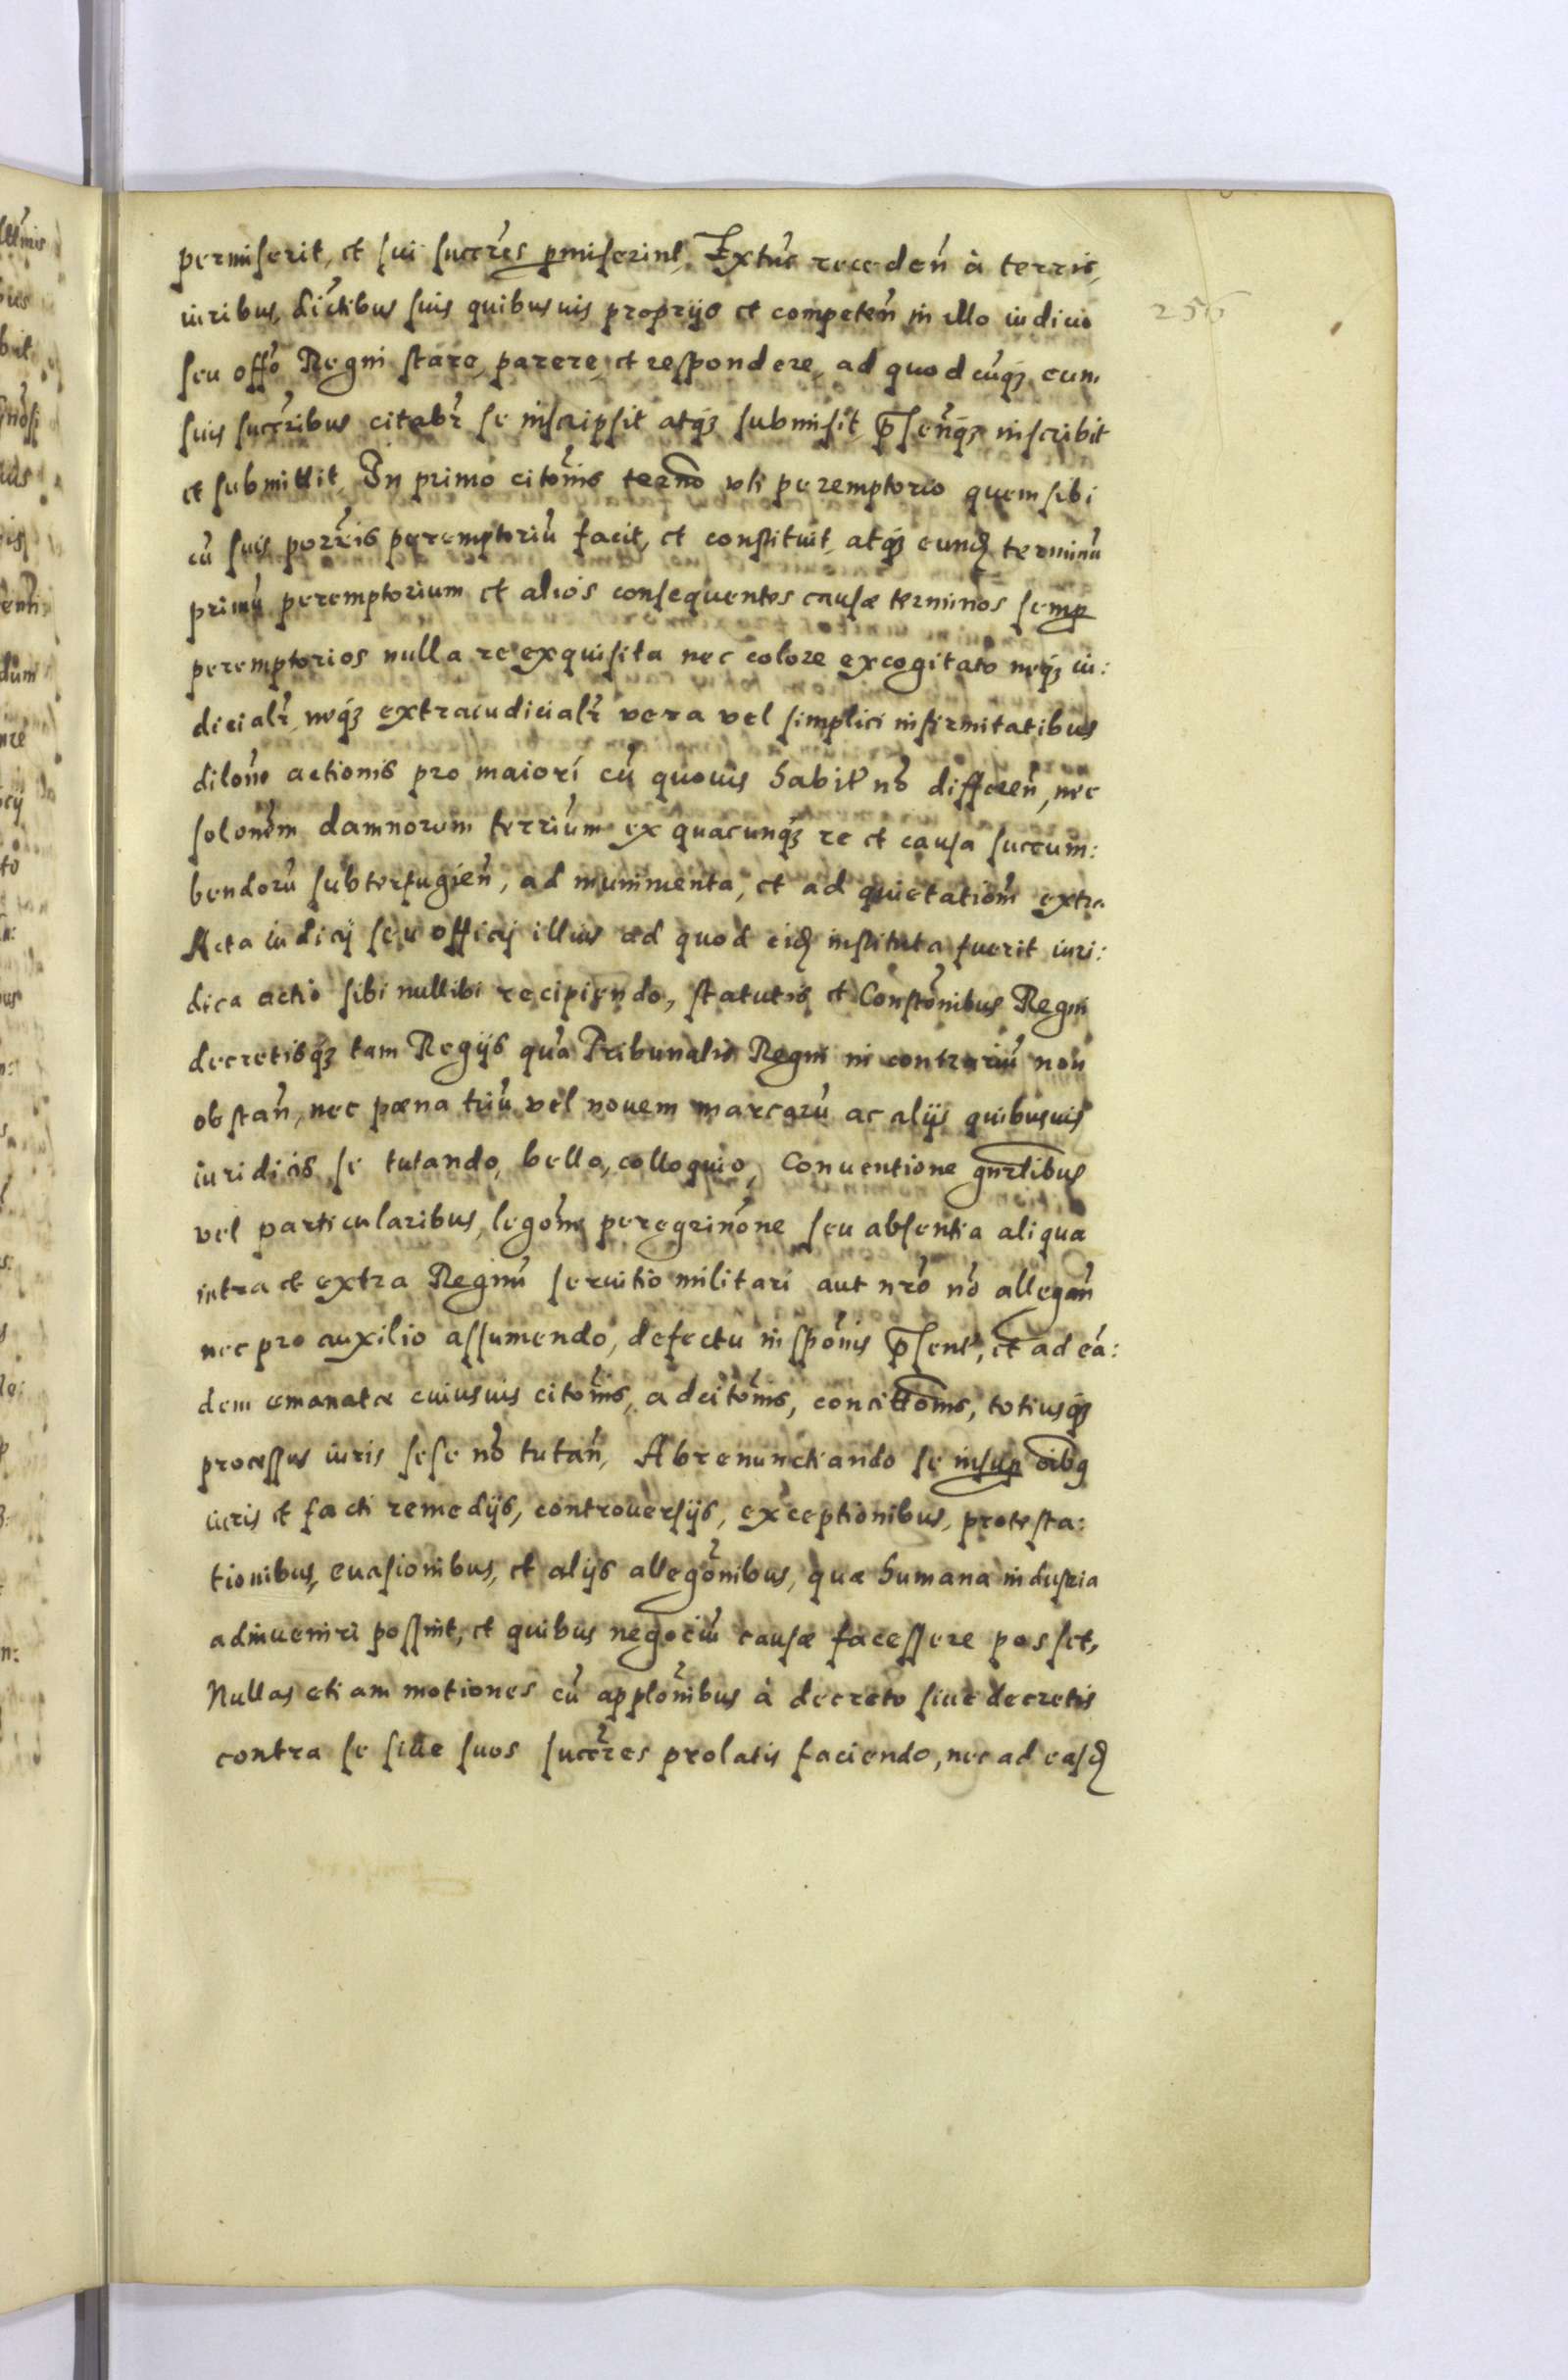 permiserit, et sui succres pmiserint, Extunc receden à terris,
iuribus, districtibus suis quibusuis proprijs et competen in illo iudicio
seu offo Regni stare, parere, et respondere, ad quodcunqȝ cum
suis succribus citabr se inscripsit atqȝ submisit, pſenqȝ inscribit
et submittit, In primo citonis termo vti peremptorio quem sibi
cu suis poreis peremptoriu facit, et constituit, atqȝ eund terminu
primu peremptorium et alios consequentes causæ terminos semp
peremptorios nulla re exquisita nec colore excogitato neqȝ iu:
dicialr, neqȝ extraiudicialr vera vel simplici infirmitatibus
dilone actionis pro maiori cu quouis habit no differen, nec
solonem damnorum terrium ex quacunqȝ re et causa succum:
bendoru subterfugien, ad munimenta, et ad quietationem extra
Acta iudicij seu officij illius ad quod eid instituta fuerit iuri:
dica actio sibi nullibi recipiendo, statutis et Constonibus Regni
decretisqȝ tam Regijs qua Tribunalis Regni in contrariu non
obstan, nec pœna triu vel nouem marcaru ac alijs quibusuis
iuridicis se tutando, bello, colloquio, Conuentione gnrlibus
vel particularibus, legone peregrinone seu absentia aliqua
intra et extra Regnu seruitio militari aut nro no allegan
nec pro auxilio assumendo, defectu insponis pſent, et ad ea:
dem emanatæ cuiusuis citonis, adcitonis, concittonis, totiusqȝ
processus iuris sese no tutan, Abrenunctiando se insup oibq
iuris et facti remedijs, controuersijs, exceptionibus, protesta:
tionibus, euasionibus, et alijs allegonibus, quæ humana industria
adinueniri possint, et quibus negociu causæ facessere posset,
Nullas etiam motiones cu applonibus à decreto siue decretis
contra se siue suos succres prolatis faciendo, nec ad easd
256